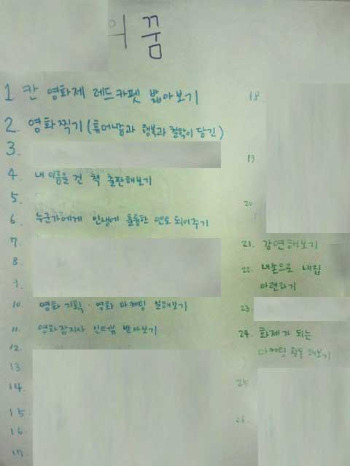 의 꿈
1 칸 영화제 레드카펫 밟아보기
2 영화찍기 (톰아저씨 행복과 철학이 담긴)
3.
4. 내 이름을 건 책 출판해보기
5.
6. 누군가에게 인생에 훌륭한 멘토 되어주기
7.
8.
9.
10. 영화 기획·영화 마케팅 일해보기
11. 영화잡지사 인터뷰 받아보기
12.
13.
14.
15
16
17.
18
19
20
21. 강연해보기
22. 내손으로 내집
마련하기
23.
24. 화제가 되는
마케팅 활동 해보기
25
26